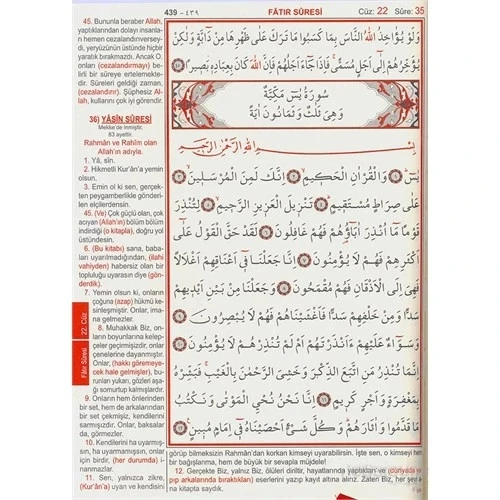 439 - ٤٣٩
FÂTIR SÛRESİ
Cüz: 22 Sûre: 35
45. Bununla beraber Allah,
yaptıklarından dolayı insanla-
rı hemen cezalandırıverseyd-
di, yeryüzünün üstünde hiçbir
yaratık bırakmazdı. Ancak O,
onları (cezalandırmayı) be-
lirli bir süreye ertelemekte-
dir. Süreleri geldiği zaman,
(cezalandırır). Şüphesiz Al-
lah, kullarını çok iyi görendir.
36) YÂSÎN SÛRESİ
Mekke'de inmiştir.
83 ayettir.
Rahmân ve Rahîm olan
Allah'ın adıyla.
1. Yâ, sîn.
2. Hikmetli Kur'ân'a yemin
olsun.
3. Emin ol ki sen, gerçek-
ten peygamberlikle gönderi-
len elçilerdensin.
45. (Ve) Çok güçlü olan, çok
acıyan (Allah'ın) bölüm bölüm
indirdiği (o kitapla), doğru yol
üstündesin.
6. (Bu kitabı) sana, baba-
ları uyarılmadığından, (ilahi
vahiyden) habersiz olan bir
topluluğu uyarasın diye (gön-
derdik).
7. Yemin olsun ki, onların
çoğuna (azap) hükmü ke-
sinleşmiştir. Onlar, iman-
a gelmezler.
8. Muhakkak Biz, on-
ların boyunlarına kelep-
çeler geçirmişizdir, onlar
çenelerine dayanmıştır.
Onlar, (hakkı göremeye-
cek hale gelmişler), bu-
runları yukarı, gözleri aşa-
ğı somurtup kalmışlardır.
9. Onların hem önlerinden
bir set, hem de arkalarından
bir set çekmişiz, kendilerini
sarmışızdır. Onlar, baksalar
da, görmezler.
10. Kendilerini ha uyarmış-
sın, ha uyarmamışsın, onlar
için birdir, (her durumda) i-
nanmazlar.
11. Sen, yalnızca zikre,
(Kur'ân'a) uyan ve kendisini
22. Cüz
Fâtır Sûresi
وَلَوْ يُؤَاخِذُ اللّٰهُ النَّاسَ بِمَا كَسَبُوا مَا تَرَكَ عَلٰى ظَهْرِهَا مِنْ دَٓابَّةٍ وَلٰكِنْ
يُؤَخِّرُهُمْ اِلٰٓى اَجَلٍ مُسَمًّى فَاِذَا جَٓاءَ اَجَلُهُمْ فَاِنَّ اللّٰهَ كَانَ بِعِبَادِه۪ بَص۪يرًا
سُورَةُ يٰسٓ مَكِّيَّةٌ
وَهِيَ ثَلٰثٌ وَثَمَانُونَ اٰيَةً
بِسْمِ اللّٰهِ الرَّحْمٰنِ الرَّح۪يمِ
يٰسٓ وَالْقُرْاٰنِ الْحَك۪يمِ اِنَّكَ لَمِنَ الْمُرْسَل۪ينَ
عَلٰى صِرَاطٍ مُسْتَق۪يمٍ تَنْز۪يلَ الْعَز۪يزِ الرَّح۪يمِ لِتُنْذِرَ
قَوْمًا مَٓا اُنْذِرَ اٰبَٓاؤُ۬هُمْ فَهُمْ غَافِلُونَ لَقَدْ حَقَّ الْقَوْلُ عَلٰٓى
اَكْثَرِهِمْ فَهُمْ لَا يُؤْمِنُونَ اِنَّا جَعَلْنَا ف۪ٓي اَعْنَاقِهِمْ اَغْلَالًا
فَهِيَ اِلَى الْاَذْقَانِ فَهُمْ مُقْمَحُونَ وَجَعَلْنَا مِنْ بَيْنِ اَيْد۪يهِمْ
سَدًّا وَمِنْ خَلْفِهِمْ سَدًّا فَاَغْشَيْنَاهُمْ فَهُمْ لَا يُبْصِرُونَ
وَسَوَٓاءٌ عَلَيْهِمْ ءَاَنْذَرْتَهُمْ اَمْ لَمْ تُنْذِرْهُمْ لَا يُؤْمِنُونَ
اِنَّمَا تُنْذِرُ مَنِ اتَّبَعَ الذِّكْرَ وَخَشِيَ الرَّحْمٰنَ بِالْغَيْبِ فَبَشِّرْهُ
بِمَغْفِرَةٍ وَاَجْرٍ كَر۪يمٍ اِنَّا نَحْنُ نُحْيِ الْمَوْتٰى وَنَكْتُبُ
مَا قَدَّمُوا وَاٰثَارَهُمْ وَكُلَّ شَيْءٍ اَحْصَيْنَاهُ ف۪ٓي اِمَامٍ مُب۪ينٍ
görüp bilmeksizin Rahman'dan korkan kimseyi uyarabilirsin. İşte sen, o kimseyi hem
bir bağışlanma, hem de büyük bir sevapla müjdele!
12. Gerçekten Biz, yalnız Biz, ölüleri diriltir, hayatlarında yaptıkları ve (dünyada ya-
pıp arkalarında bıraktıkları) eserlerini yazıp kayıt altına alırız. Zaten Biz, her şeyi a-
na kitapta saydık.